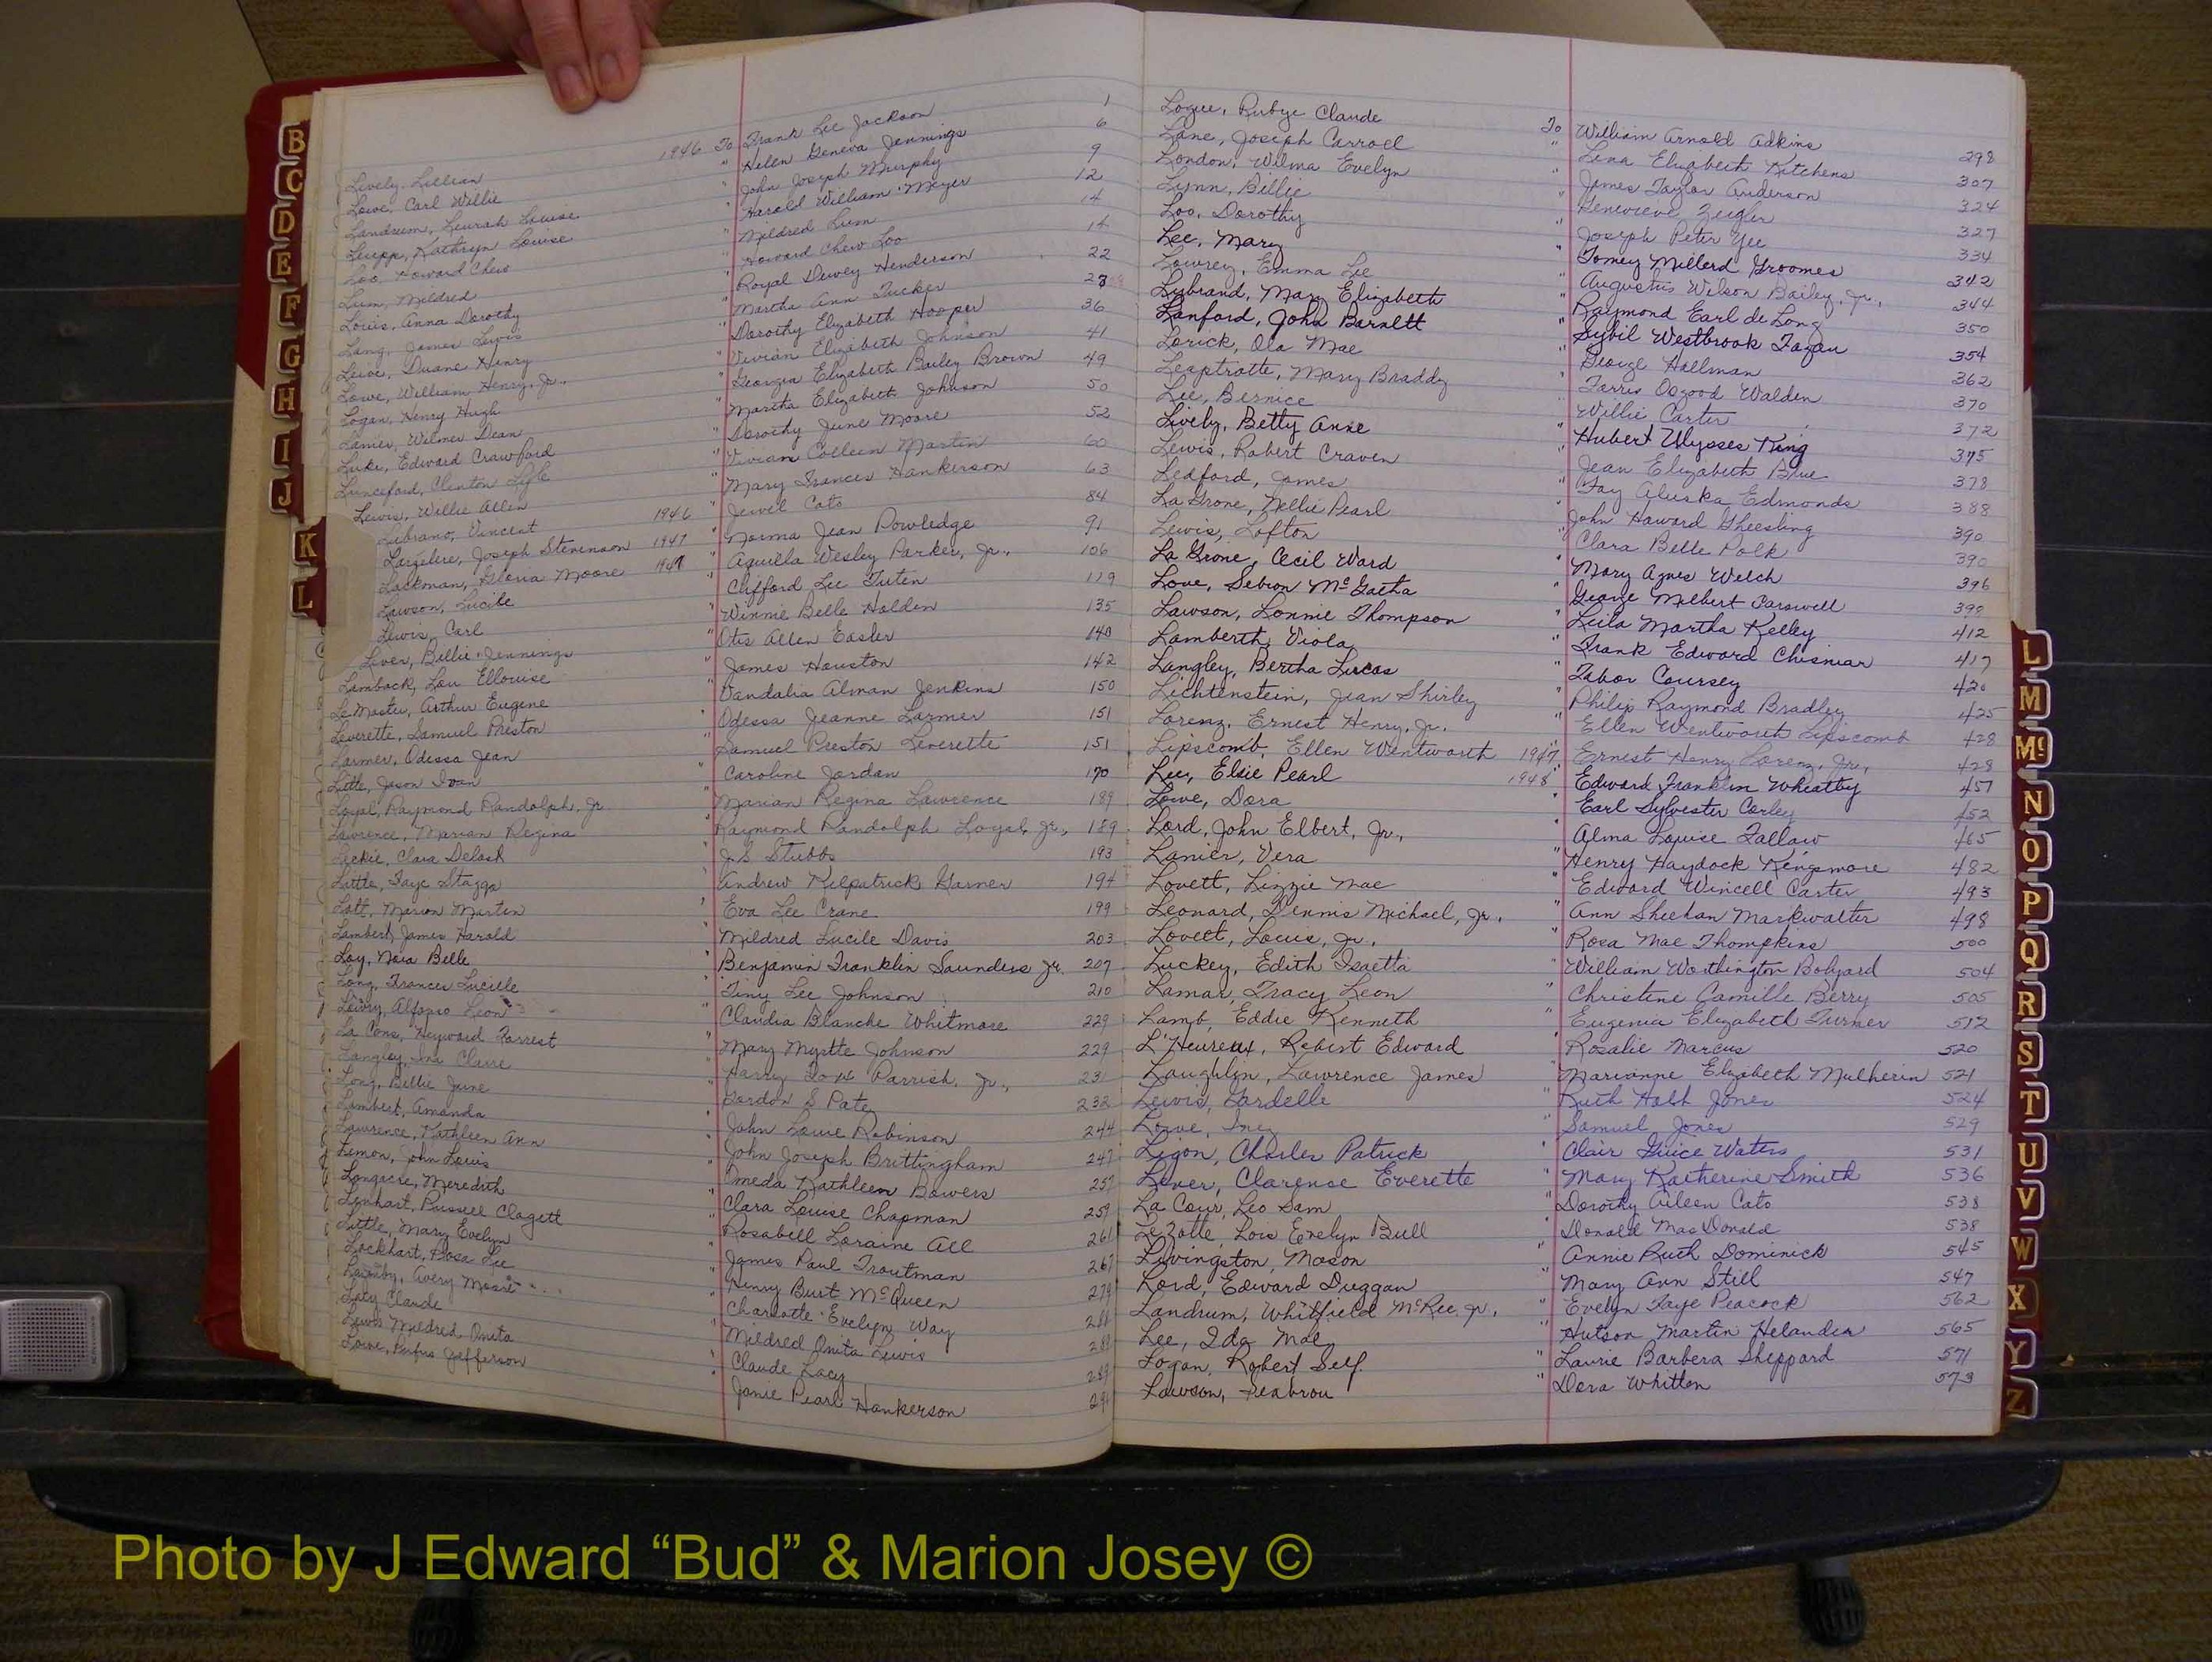 B
C
D
E
F
G
H
I
J
K
L
Lively, Lillian 1946 To Frank Lee Jackson 1
Lowe, Carl Willie " Helen Geneva Jennings 6
Landrum, Louise " John Joseph Murphy 9
Leupp, Kathryn Louise " Harold William Meyer 12
Loo, Howard Chew " Mildred Lum 14
Lum, Mildred " Howard Chew Loo 14
Louis, Anna Dorothy " Royal Dewey Henderson 22
Lang, James Lewis " Martha Ann Tucker 28
Lowe, Duane Henry " Dorothy Elizabeth Hooper 36
Lowe, William Henry, Jr. " Vivian Elizabeth Johnson 41
Logan, Henry Hugh " Georgia Elizabeth Bailey Brown 49
Lamer, Wilmer Dean " Martha Elizabeth Johnson 50
Luke, Edward Crawford " Dorothy June Moore 52
Lunceford, Clinton Lyle " Vivian Colleen Martin 60
Lewis, Willie Allen " Mary Frances Hankerson 63
Librano, Vincent 1946 " Jewel Cato 84
Larzelire, Joseph Stevenson 1947 " Norma Jean Powledge 91
Lackman, Gloria Moore 1947 " Aquilla Wesley Parker, Jr., 106
Lawson, Lucile " Clifford Lee Tuten 119
Lewis, Carl " Winnie Belle Holden 135
Liver, Billie Jennings " Otis Allen Easler 140
Lamback, Lou Ellouise " James Houston 142
Le Master, Arthur Eugene " Vandalia Alman Jenkins 150
Leverette, Samuel Preston " Odessa Jeanne Larmer 151
Larmer, Odessa Jean " Samuel Preston Leverette 151
Little, Jason " Caroline Jordan 170
Loyal, Raymond Randolph, Jr. " Marian Regina Lawrence 189
Lawrence, Marian Regina " Raymond Randolph Loyal, Jr., 189
Leckie, Clara Delosh " J.S. Stubbs 193
Little, Faye Staggs " Andrew Kilpatrick Garner 194
Lott, Marion Martin " Eva Lee Crane 199
Lambert, James Harold " Mildred Lucile Davis 203
Loy, Nora Belle " Benjamin Franklin Saunders Jr. 207
Long, Frances Lucille " Tiny Lee Johnson 210
Lowry, Alfonso Leon " Claudia Blanche Whitmore 229
La Cons, Heyward Forrest " Mary Myrtle Johnson 229
Langley, Ina Claire " Harry Parrish, Jr., 231
Long, Billie June " Gordon S Pate 232
Lambert, Amanda " John Louie Robinson 244
Lawrence, Kathleen Ann " John Joseph Brittingham 247
Lemon, John Louis " Omeda Kathleen Bowers 257
Longacre, Meredith " Clara Louise Chapman 259
Lenhart, Russell Clagett " Rosabell Loraine All 261
Little, Mary Evelyn " James Paul Troutman 267
Lockhart, Rosa Lee " Henry Burt McQueen 279
Lazenby, Avery " Charlotte Evelyn Way
Lacy Claude " Mildred Onita Lewis
Lewis Mildred Onita " Claude Lacy
Lowe, Rufus Jefferson " Janie Pearl Hankerson
Logue, Rubye Claude To William Arnold Adkins 298
Lane, Joseph Carroll " Lena Elizabeth Kitchens 307
London, Wilma Evelyn " James Taylor Anderson 324
Lynn, Billie " Genevieve Zeigler 327
Loo, Dorothy " Joseph Peter Yee 334
Lee, Mary " Tomey Millerd Groomes 342
Lowrey, Emma Lee " Augustus Wilson Bailey, Jr., 344
Lybrand, Mary Elizabeth " Raymond Earl de Long 350
Lanford, John Barnett " Sybil Westbrook Fagan 354
Lorick, Ola Mae " George Hallman 362
Leaptrotte, Mary Braddy " Farris Osgood Walden 370
Lee, Bernice " Willie Carter 372
Lively, Betty Anne " Hubert Ulysses King 375
Lewis, Robert Craven " Jean Elizabeth Blue 378
Ledford, James " Fay Aluska Edmonds 388
La Grone, Nellie Pearl " John Howard Gheesling 390
Lewis, Lofton " Clara Belle Polk 390
La Grone, Cecil Ward " Mary Agnes Welch 396
Love, Sebron McGatha " George Melbert Carswell 399
Lawson, Lonnie Thompson " Leila Martha Kelley 412
Lamberth, Viola " Frank Edward Chismar 417
Langley, Bertha Lucas " Tabor Coursey 420
Lichtenstein, Jean Shirley " Philip Raymond Bradley 425
Lorenz, Ernest Henry, Jr. " Ellen Wentworth Lipscomb 428
Lipscomb, Ellen Wentworth 1947 " Ernest Henry Lorenz, Jr., 428
Lee, Elsie Pearl 1948 " Edward Franklin Wheatley 457
Lowe, Dora " Earl Sylvester Corley 452
Lord, John Elbert, Jr., " Alma Louise Fallaw 465
Lanier, Vera " Henry Haydock Kingsmore 482
Lovett, Lizzie Mae " Edward Wincell Carter 493
Leonard, Dennis Michael, Jr. " Ann Sheehan Markwalter 498
Lovett, Louis, Jr. " Rosa Mae Thompkins 500
Luckey, Edith Isaetta " William Worthington Bolyard 504
Lamar, Tracy Leon " Christine Camille Berry 505
Lamb, Eddie Kenneth " Eugenia Elizabeth Turner 512
L'Heureux, Robert Edward " Rosalie Marcus 520
Laughlin, Lawrence James " Marianne Elizabeth Mulherin 521
Lewis, Lardelle " Ruth Holt Jones 524
Lowe, Inez " Samuel Jones 529
Ligon, Charles Patrick " Clair Guice Waters 531
Lever, Clarence Everette " Mary Katherine Smith 536
La Cour, Leo Sam " Dorothy Aileen Cato 538
LeZotte, Lois Evelyn Bull " Donald MacDonald 538
Livingston, Mason " Annie Ruth Dominick 545
Lord, Edward Duggan " Mary Ann Still 547
Landrum, Whitfield McRee, Jr. " Evelyn Faye Peacock 562
Lee, Ida Mae " Hutson Martin Helander 565
Logan, Robert Self " Laurie Barbera Sheppard 571
Lawson, Seabrou " Dera Whitten 573
L
M
Mc
N
O
P
Q
R
S
T
U
V
W
X
Y
Z
Photo by J Edward “Bud” & Marion Josey ©